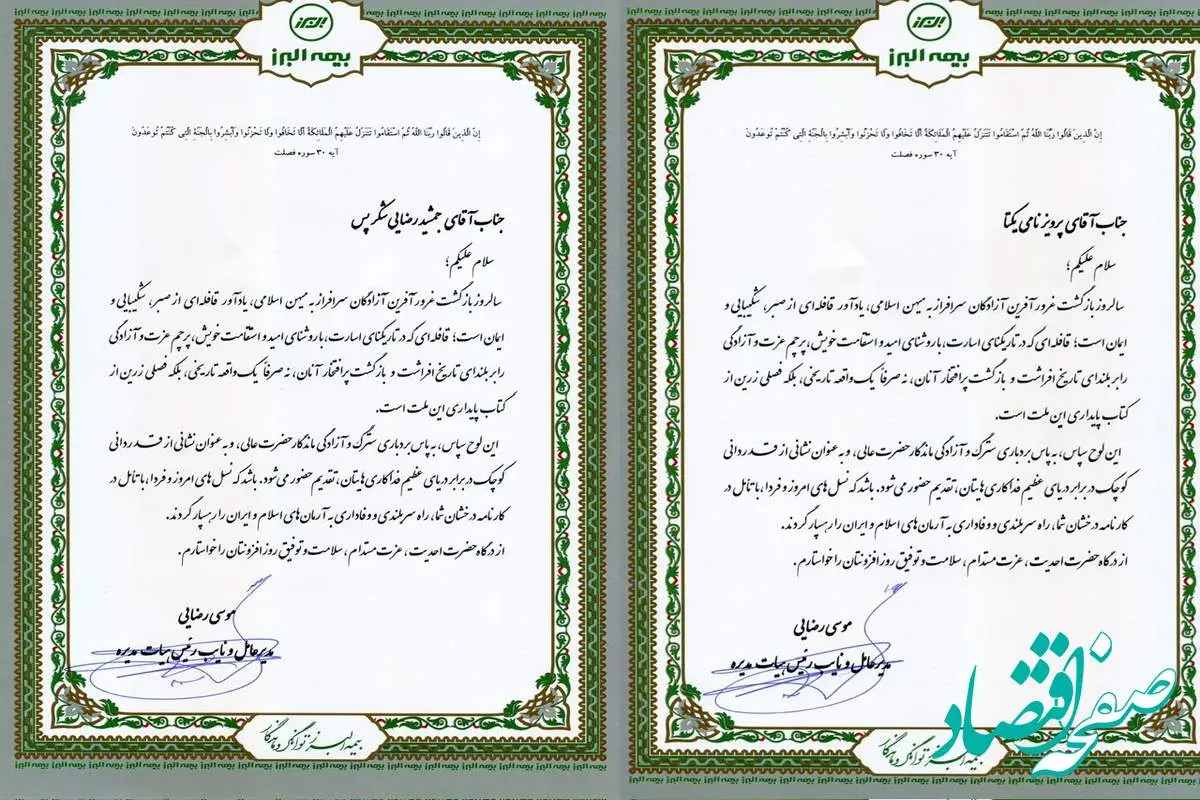 البرز
بیمه البرز
إِنَّ الَّذِینَ قَالُوا رَبُّنَا اللَّهُ ثُمَّ اسْتَقَامُوا تَتَنَزَّلُ عَلَیْهِمُ الْمَلَائِکَةُ أَلَّا تَخَافُوا وَلَا تَحْزَنُوا وَأَبْشِرُوا بِالْجَنَّةِ الَّتِی کُنْتُمْ تُوعَدُونَ
آیه ۳۰ سوره فصلت
جناب آقای پرویز نامی یکتا
سلام علیکم؛
سالروز بازگشت غرور آفرین آزادگان سرافراز به میهن اسلامی، یادآور قافله‌ای از صبر، شکیبایی و
ایمان است؛ قافله‌ای که در تاریکنای اسارت، با روشنای امید و استقامت خویش، پرچم عزت و آزادگی
را بر بلندای تاریخ افراشت و بازگشت پرافتخار آنان، نه صرفاً یک واقعه تاریخی، بلکه فصلی زرین از
کتاب پایداری این ملت است.
این لوح سپاس، به پاس بردباری سترگ و آزادگی ماندگار حضرت عالی، و به عنوان نشانی از قدردانی
کوچک در برابر دریای عظیم فداکاری هایتان، تقدیم حضور می‌شود. باشد که نسل های امروز و فردا، با تأمل در
کارنامه درخشان شما، راه سربلندی و وفاداری به آرمان های اسلام و ایران را رهسپار گردند.
از درگاه حضرت احدیت، عزت مستدام، سلامت و توفیق روز افزونتان را خواستارم.
موسی رضایی
مدیرعامل و نایب رئیس هیات مدیره
بیمه البرز توانگر و ماندگار
صفحه اقتصاد
البرز
بیمه البرز
إِنَّ الَّذِینَ قَالُوا رَبُّنَا اللَّهُ ثُمَّ اسْتَقَامُوا تَتَنَزَّلُ عَلَیْهِمُ الْمَلَائِکَةُ أَلَّا تَخَافُوا وَلَا تَحْزَنُوا وَأَبْشِرُوا بِالْجَنَّةِ الَّتِی کُنْتُمْ تُوعَدُونَ
آیه ۳۰ سوره فصلت
جناب آقای جمشید رضایی شکرپس
سلام علیکم؛
سالروز بازگشت غرور آفرین آزادگان سرافراز به میهن اسلامی، یادآور قافله‌ای از صبر، شکیبایی و
ایمان است؛ قافله‌ای که در تاریکنای اسارت، با روشنای امید و استقامت خویش، پرچم عزت و آزادگی
را بر بلندای تاریخ افراشت و بازگشت پرافتخار آنان، نه صرفاً یک واقعه تاریخی، بلکه فصلی زرین از
کتاب پایداری این ملت است.
این لوح سپاس، به پاس بردباری سترگ و آزادگی ماندگار حضرت عالی، و به عنوان نشانی از قدردانی
کوچک در برابر دریای عظیم فداکاری هایتان، تقدیم حضور می‌شود. باشد که نسل های امروز و فردا، با تأمل در
کارنامه درخشان شما، راه سربلندی و وفاداری به آرمان های اسلام و ایران را رهسپار گردند.
از درگاه حضرت احدیت، عزت مستدام، سلامت و توفیق روز افزونتان را خواستارم.
موسی رضایی
مدیرعامل و نایب رئیس هیات مدیره
بیمه البرز توانگر و ماندگار